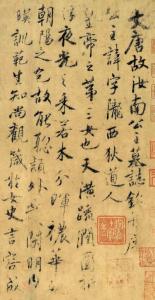 大唐故汝南公主墓誌銘并序
公主諱字隴西狄道人
皇帝之第三女也天潢疏潤圓折
浮夜光之采若木分暉穠華
朝陽之色故能聰穎外發閑明内
暎訓範生知尚觀箴於女史言容